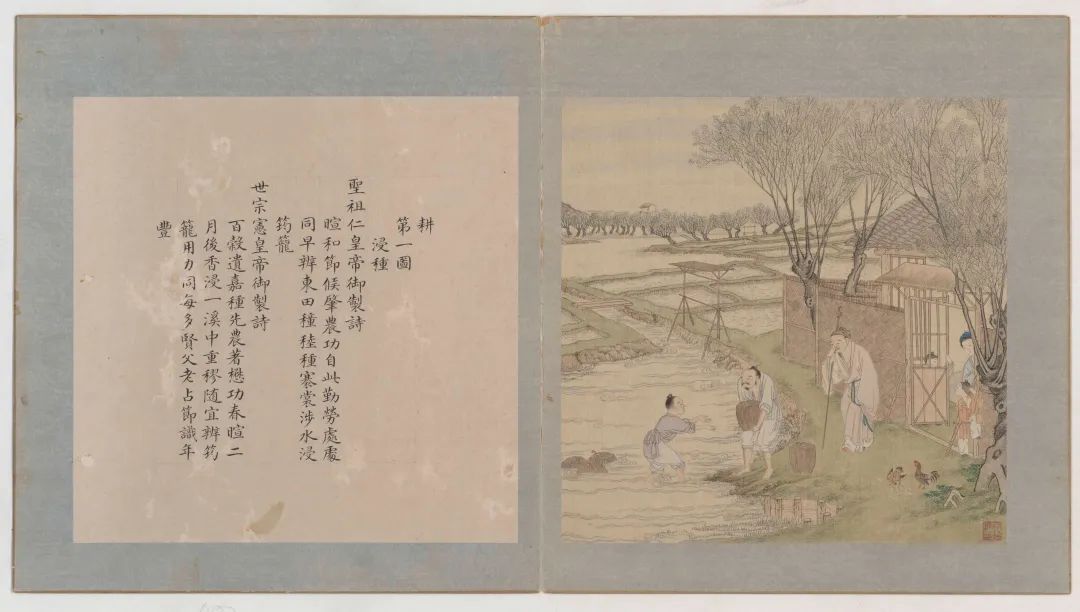 耕
第一圖
浸種
聖祖仁皇帝御製詩
暄和節候肇農功自此勤勞處處
同早辨東田種稑種褰裳涉水浸
筠籠
世宗憲皇帝御製詩
百穀遺嘉種先農著懋功春暄二
月後香浸一溪中重穋随宜辨筠
籠用力同每多賢父老占節識年
豐